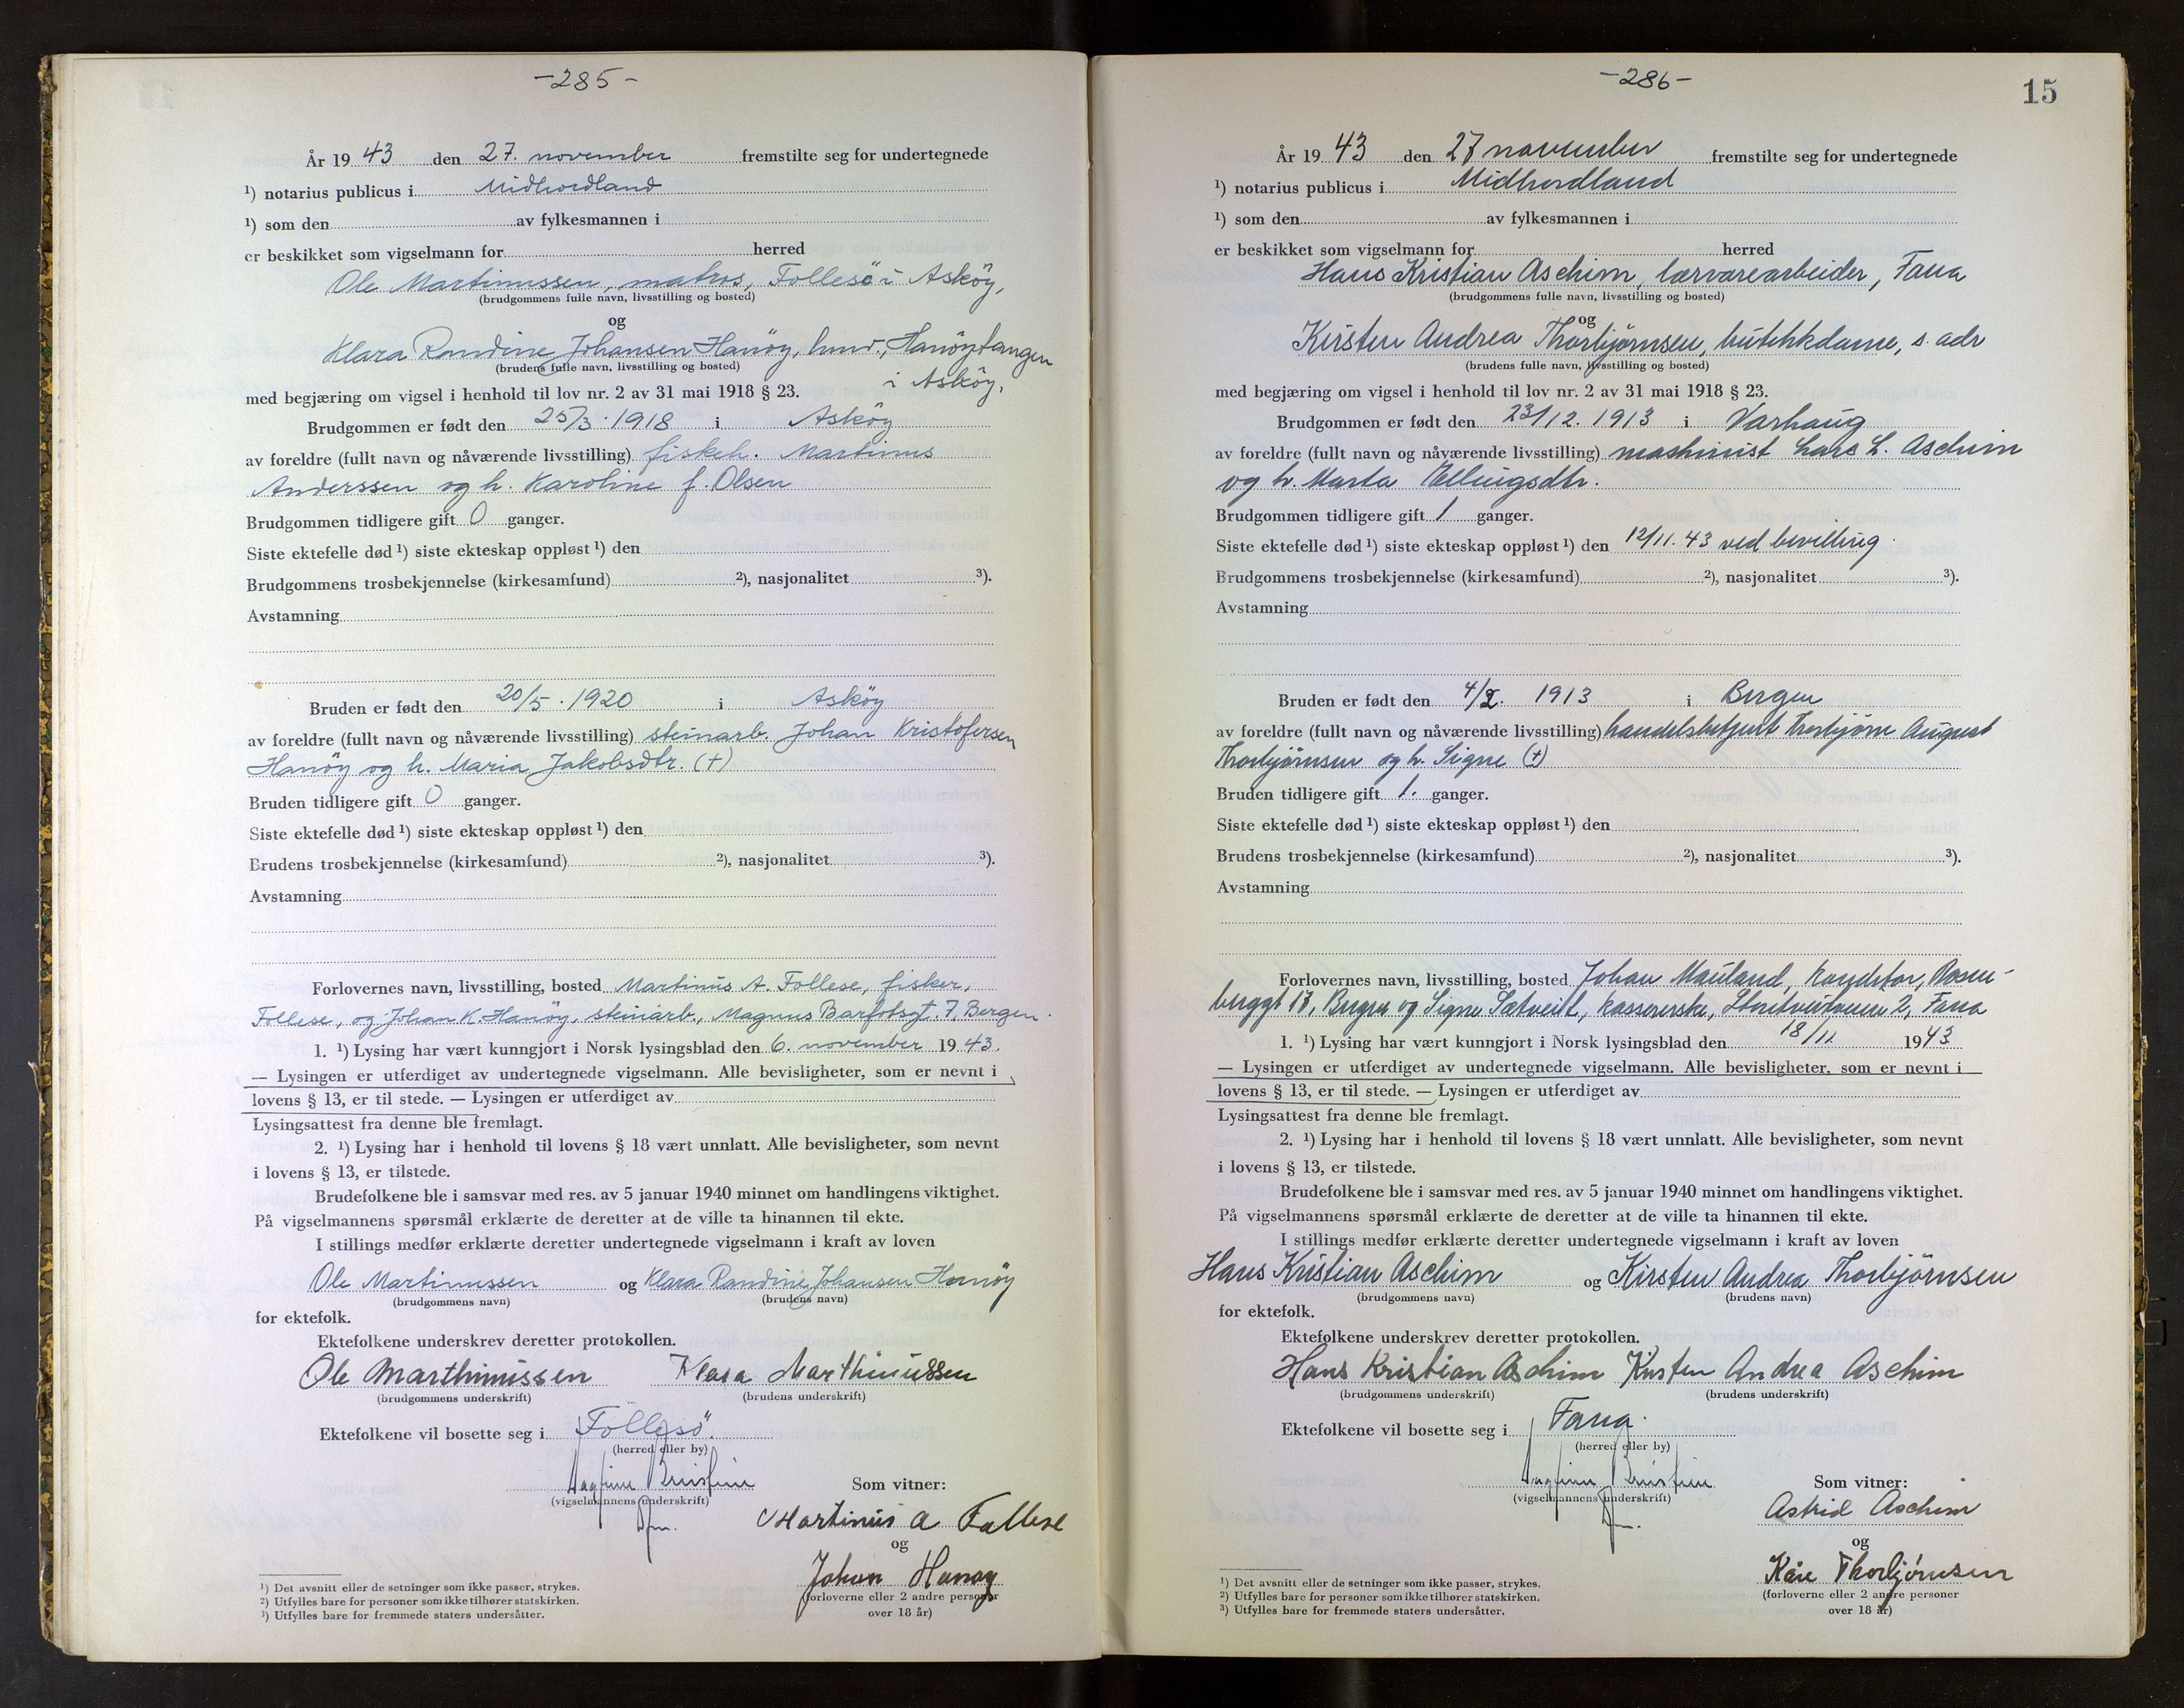 -285-
År 19 43 den 27. november fremstilte seg for undertegnede
¹) notarius publicus i Midhordland
¹) som den av fylkesmannen i
er beskikket som vigselmann for herred
Ole Martinussen, matros, Follesö i Asköy,
(brudgommens fulle navn, livsstilling og bosted)
og
Klara Randine Johansen Hanöy, husv., Hanöytangen
(brudens fulle navn, livsstilling og bosted)
i Asköy,
med begjæring om vigsel i henhold til lov nr. 2 av 31 mai 1918 § 23.
Brudgommen er født den 25/3. 1918 i Asköy
av foreldre (fullt navn og nåværende livsstilling) fiskeh. Martinus
Anderssen og h. Karoline f. Olsen
Brudgommen tidligere gift 0 ganger.
Siste ektefelle død ¹) siste ekteskap oppløst ¹) den
Brudgommens trosbekjennelse (kirkesamfund) ²), nasjonalitet ³).
Avstamning
Bruden er født den 20/5. 1920 i Asköy
av foreldre (fullt navn og nåværende livsstilling) steinarb. Johan Kristofersen
Hanöy og h. Maria Jakobsdtr. (+)
Bruden tidligere gift 0 ganger.
Siste ektefelle død ¹) siste ekteskap oppløst ¹) den
Brudens trosbekjennelse (kirkesamfund) ²), nasjonalitet ³).
Avstamning
Forlovernes navn, livsstilling, bosted Martinus A. Follese, fisker,
Follese, og Johan K. Hanöy, steinarb., Magnus Barfotsgt. 7, Bergen.
1. ¹) Lysing har vært kunngjort i Norsk lysingsblad den 6. november 19 43.
— Lysingen er utferdiget av undertegnede vigselmann. Alle bevisligheter, som er nevnt i
lovens § 13, er til stede. — Lysingen er utferdiget av
Lysingsattest fra denne ble fremlagt.
2. ¹) Lysing har i henhold til lovens § 18 vært unnlatt. Alle bevisligheter, som nevnt
i lovens § 13, er tilstede.
Brudefolkene ble i samsvar med res. av 5 januar 1940 minnet om handlingens viktighet.
På vigselmannens spørsmål erklærte de deretter at de ville ta hinannen til ekte.
I stillings medfør erklærte deretter undertegnede vigselmann i kraft av loven
Ole Martinussen og Klara Randine Johansen Hanöy
(brudgommens navn) (brudens navn)
for ektefolk.
Ektefolkene underskrev deretter protokollen.
Ole Marthinussen Klara Marthinussen
(brudgommens underskrift) (brudens underskrift)
Ektefolkene vil bosette seg i Follesö.
(herred eller by)
Som vitner:
(vigselmannens underskrift)
Martinus A Follese
og
Johan Hanøy
(forloverne eller 2 andre personer
over 18 år)
¹) Det avsnitt eller de setninger som ikke passer, strykes.
²) Utfylles bare for personer som ikke tilhører statskirken.
³) Utfylles bare for fremmede staters undersåtter.
-286-
15
År 19 43 den 27 november fremstilte seg for undertegnede
¹) notarius publicus i Midhordland
¹) som den av fylkesmannen i
er beskikket som vigselmann for herred
Hans Kristian Aschim, lærvarearbeider, Fana
(brudgommens fulle navn, livsstilling og bosted)
og
Kirsten Andrea Thorbjørnsen, butikkdame, s. adr
(brudens fulle navn, livsstilling og bosted)
med begjæring om vigsel i henhold til lov nr. 2 av 31 mai 1918 § 23.
Brudgommen er født den 23/12. 1913 i Varhaug
av foreldre (fullt navn og nåværende livsstilling) maskinist Lars L. Aschim
og h. Marta Ellingsdtr.
Brudgommen tidligere gift 1 ganger.
Siste ektefelle død ¹) siste ekteskap oppløst ¹) den 12/11. 43 ved bevilling.
Brudgommens trosbekjennelse (kirkesamfund) ²), nasjonalitet ³).
Avstamning
Bruden er født den 4/2. 1913 i Bergen
av foreldre (fullt navn og nåværende livsstilling) handelsbetjent Thorbjörn August
Thorbjörnsen og h. Signe (+)
Bruden tidligere gift 1. ganger.
Siste ektefelle død ¹) siste ekteskap oppløst ¹) den
Brudens trosbekjennelse (kirkesamfund) ²), nasjonalitet ³).
Avstamning
Forlovernes navn, livsstilling, bosted Johan Mauland, konditor, Rosen-
berggt 17, Bergen og Signe Sætveitt, kassererske, 2, Fana
1. ¹) Lysing har vært kunngjort i Norsk lysingsblad den 18/11. 1943
— Lysingen er utferdiget av undertegnede vigselmann. Alle bevisligheter, som er nevnt i
lovens § 13, er til stede. — Lysingen er utferdiget av
Lysingsattest fra denne ble fremlagt.
2. ¹) Lysing har i henhold til lovens § 18 vært unnlatt. Alle bevisligheter, som nevnt
i lovens § 13, er tilstede.
Brudefolkene ble i samsvar med res. av 5 januar 1940 minnet om handlingens viktighet.
På vigselmannens spørsmål erklærte de deretter at de ville ta hinannen til ekte.
I stillings medfør erklærte deretter undertegnede vigselmann i kraft av loven
Hans Kristian Aschim og Kirsten Andrea Thorbjörnsen
(brudgommens navn) (brudens navn)
for ektefolk.
Ektefolkene underskrev deretter protokollen.
Hans Kristian Aschim Kirsten Andrea Aschim
(brudgommens underskrift) (brudens underskrift)
Ektefolkene vil bosette seg i Fana.
(herred eller by)
Som vitner:
(vigselmannens underskrift)
Astrid Aschim
og
Kåre Thorbjørnsen
(forloverne eller 2 andre personer
over 18 år)
¹) Det avsnitt eller de setninger som ikke passer, strykes.
²) Utfylles bare for personer som ikke tilhører statskirken.
³) Utfylles bare for fremmede staters undersåtter.